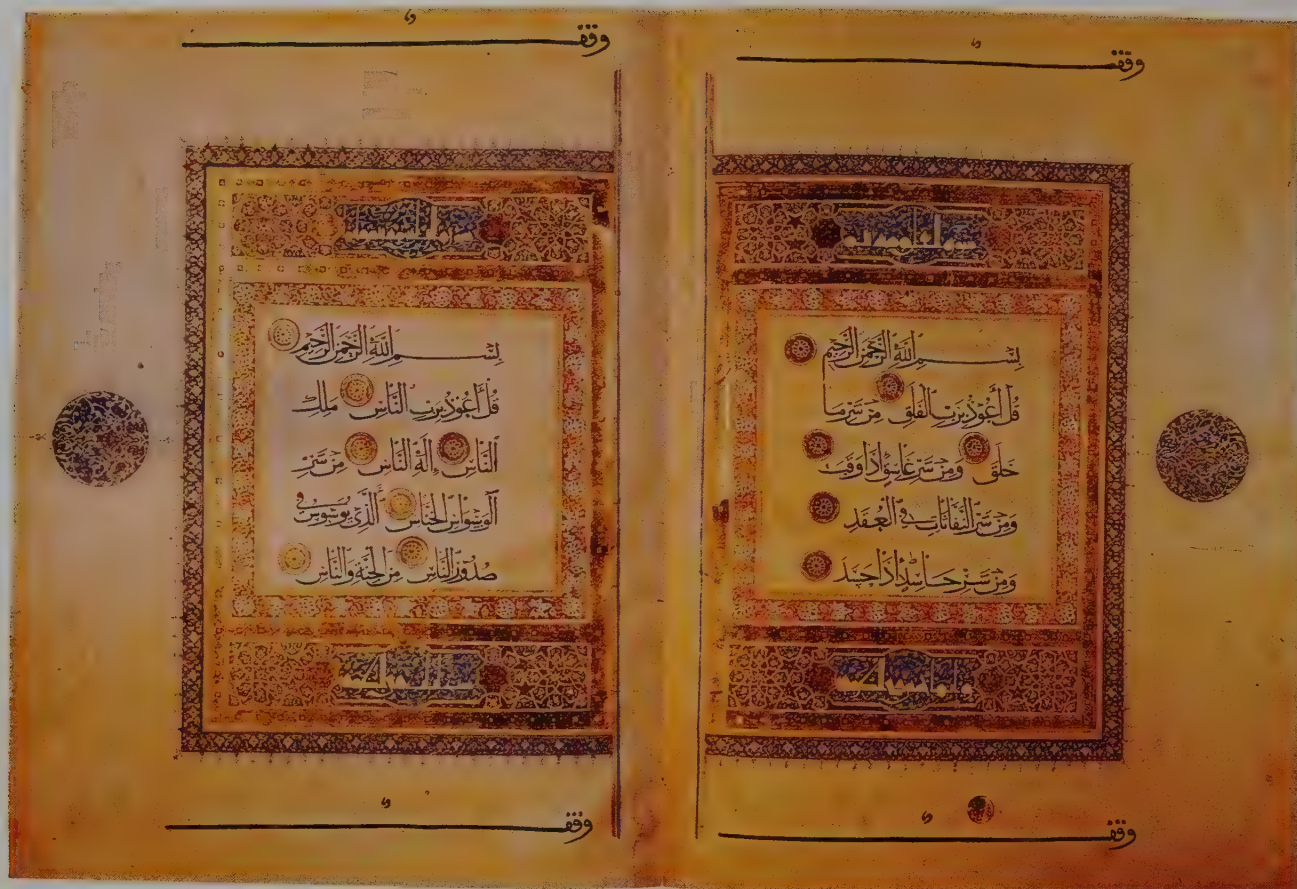 وقف
بِسْمِ اللَّهِ الرَّحْمَٰنِ الرَّحِيمِ
قُلْ أَعُوذُ بِرَبِّ الْفَلَقِ مِنْ شَرِّ مَا
خَلَقَ وَمِنْ شَرِّ غَاسِقٍ إِذَا وَقَبَ
وَمِنْ شَرِّ النَّفَّاثَاتِ فِي الْعُقَدِ
وَمِنْ شَرِّ حَاسِدٍ إِذَا حَسَدَ
وقف
وقف
بِسْمِ اللَّهِ الرَّحْمَٰنِ الرَّحِيمِ
قُلْ أَعُوذُ بِرَبِّ النَّاسِ مَلِكِ
النَّاسِ إِلَٰهِ النَّاسِ مِنْ شَرِّ
الْوَسْوَاسِ الْخَنَّاسِ الَّذِي يُوَسْوِسُ فِي
صُدُورِ النَّاسِ مِنَ الْجِنَّةِ وَالنَّاسِ
وقف